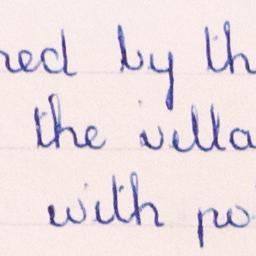 ned by th
the villa
with po